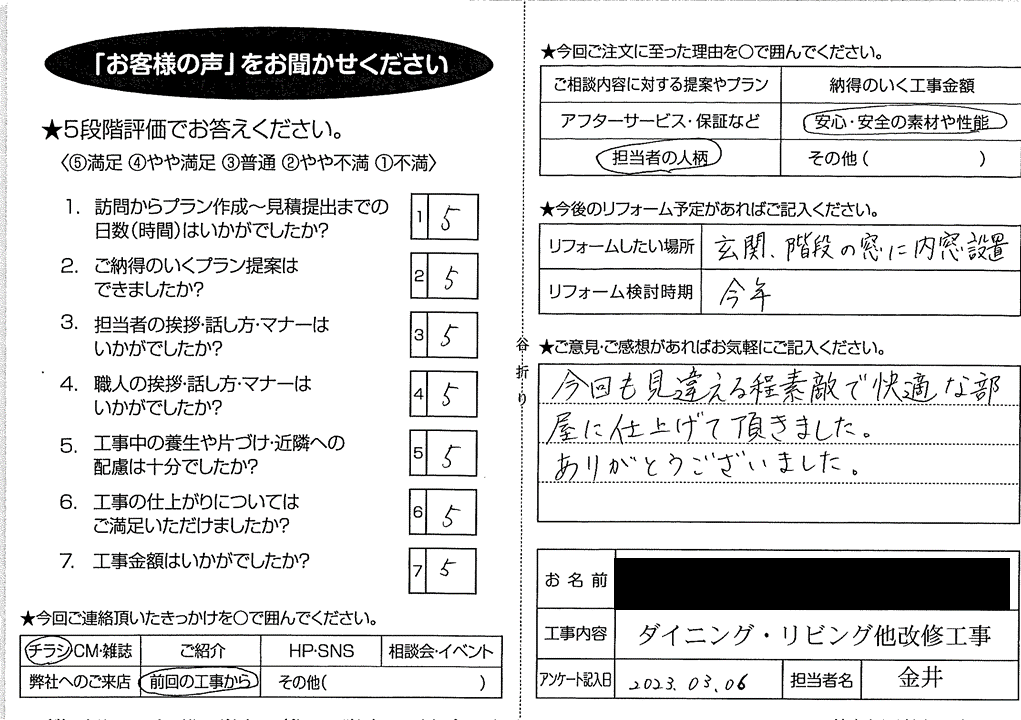 「お客様の声」をお聞かせください
★5段階評価でお答えください。
〈⑤満足 ④やや満足 ③普通 ②やや不満 ①不満〉
1. 訪問からプラン作成～見積提出までの
日数(時間)はいかがでしたか?
1 5
2. ご納得のいくプラン提案は
できましたか?
2 5
3. 担当者の挨拶・話し方・マナーは
いかがでしたか?
3 5
4. 職人の挨拶・話し方・マナーは
いかがでしたか?
4 5
5. 工事中の養生や片づけ・近隣への
配慮は十分でしたか?
5 5
6. 工事の仕上がりについては
ご満足いただけましたか?
6 5
7. 工事金額はいかがでしたか?
7 5
★今回ご連絡頂いたきっかけを○で囲んでください。
チラシ・CM・雑誌 ご紹介 HP・SNS 相談会・イベント
弊社へのご来店 前回の工事から その他( )
谷折り
★今回ご注文に至った理由を○で囲んでください。
ご相談内容に対する提案やプラン 納得のいく工事金額
アフターサービス・保証など 安心・安全の素材や性能
担当者の人柄 その他( )
★今後のリフォーム予定があればご記入ください。
リフォームしたい場所 玄関、階段の窓に内窓設置
リフォーム検討時期 今年
★ご意見・ご感想があればお気軽にご記入ください。
今回も見違える程素敵で快適な部
屋に仕上げて頂きました。
ありがとうございました。
お名前
工事内容 ダイニング・リビング他改修工事
アンケート記入日 2023.03.06 担当者名 金井